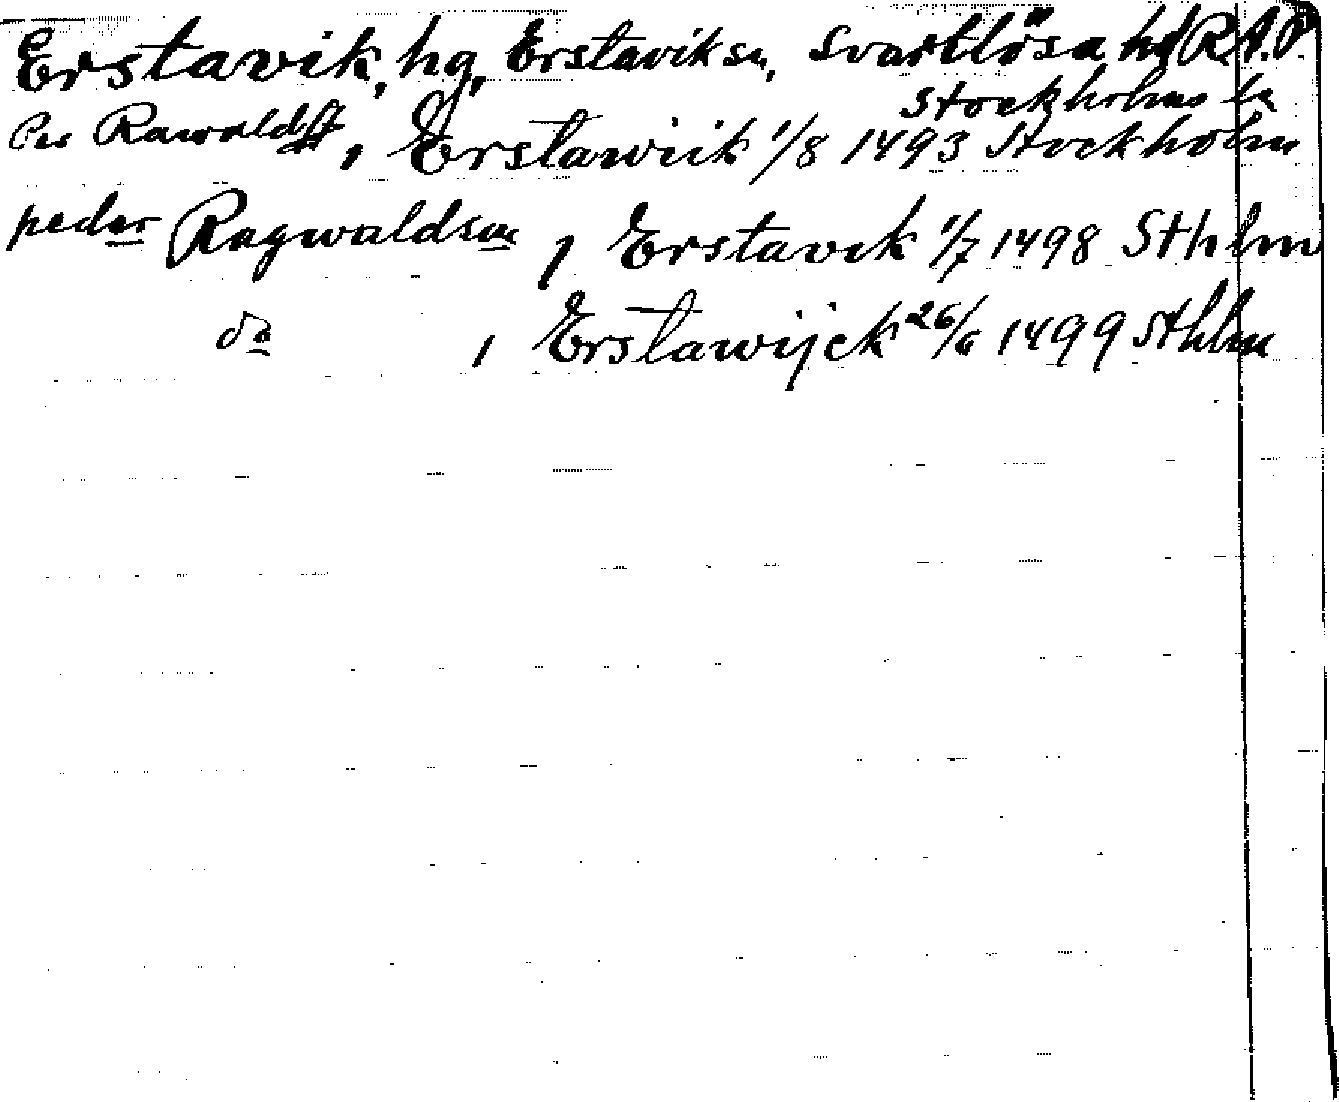 Erstavik, hg, Erstaviksn, Svartlösa hd R.A.P
Stockholms la
Per Rawaldss, i Erstawiik 1/8 1493 Stockholm
peder Ragwaldsn i Erstavik 1/7 1498 Sthlm
do i Erstawijck 26/6 1499 Sthlm